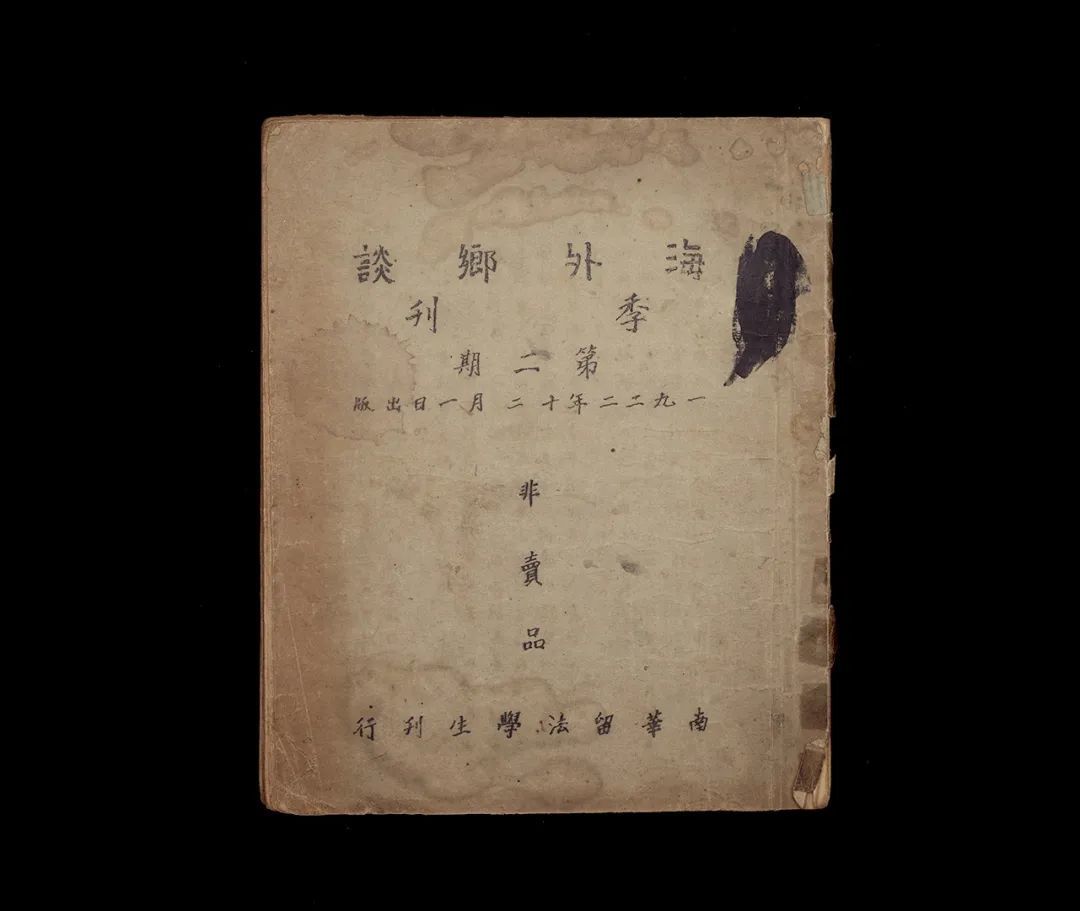 海外鄉談
季刊
第二期
一九二二年十二月一日出版
非賣品
南華留法學生刊行